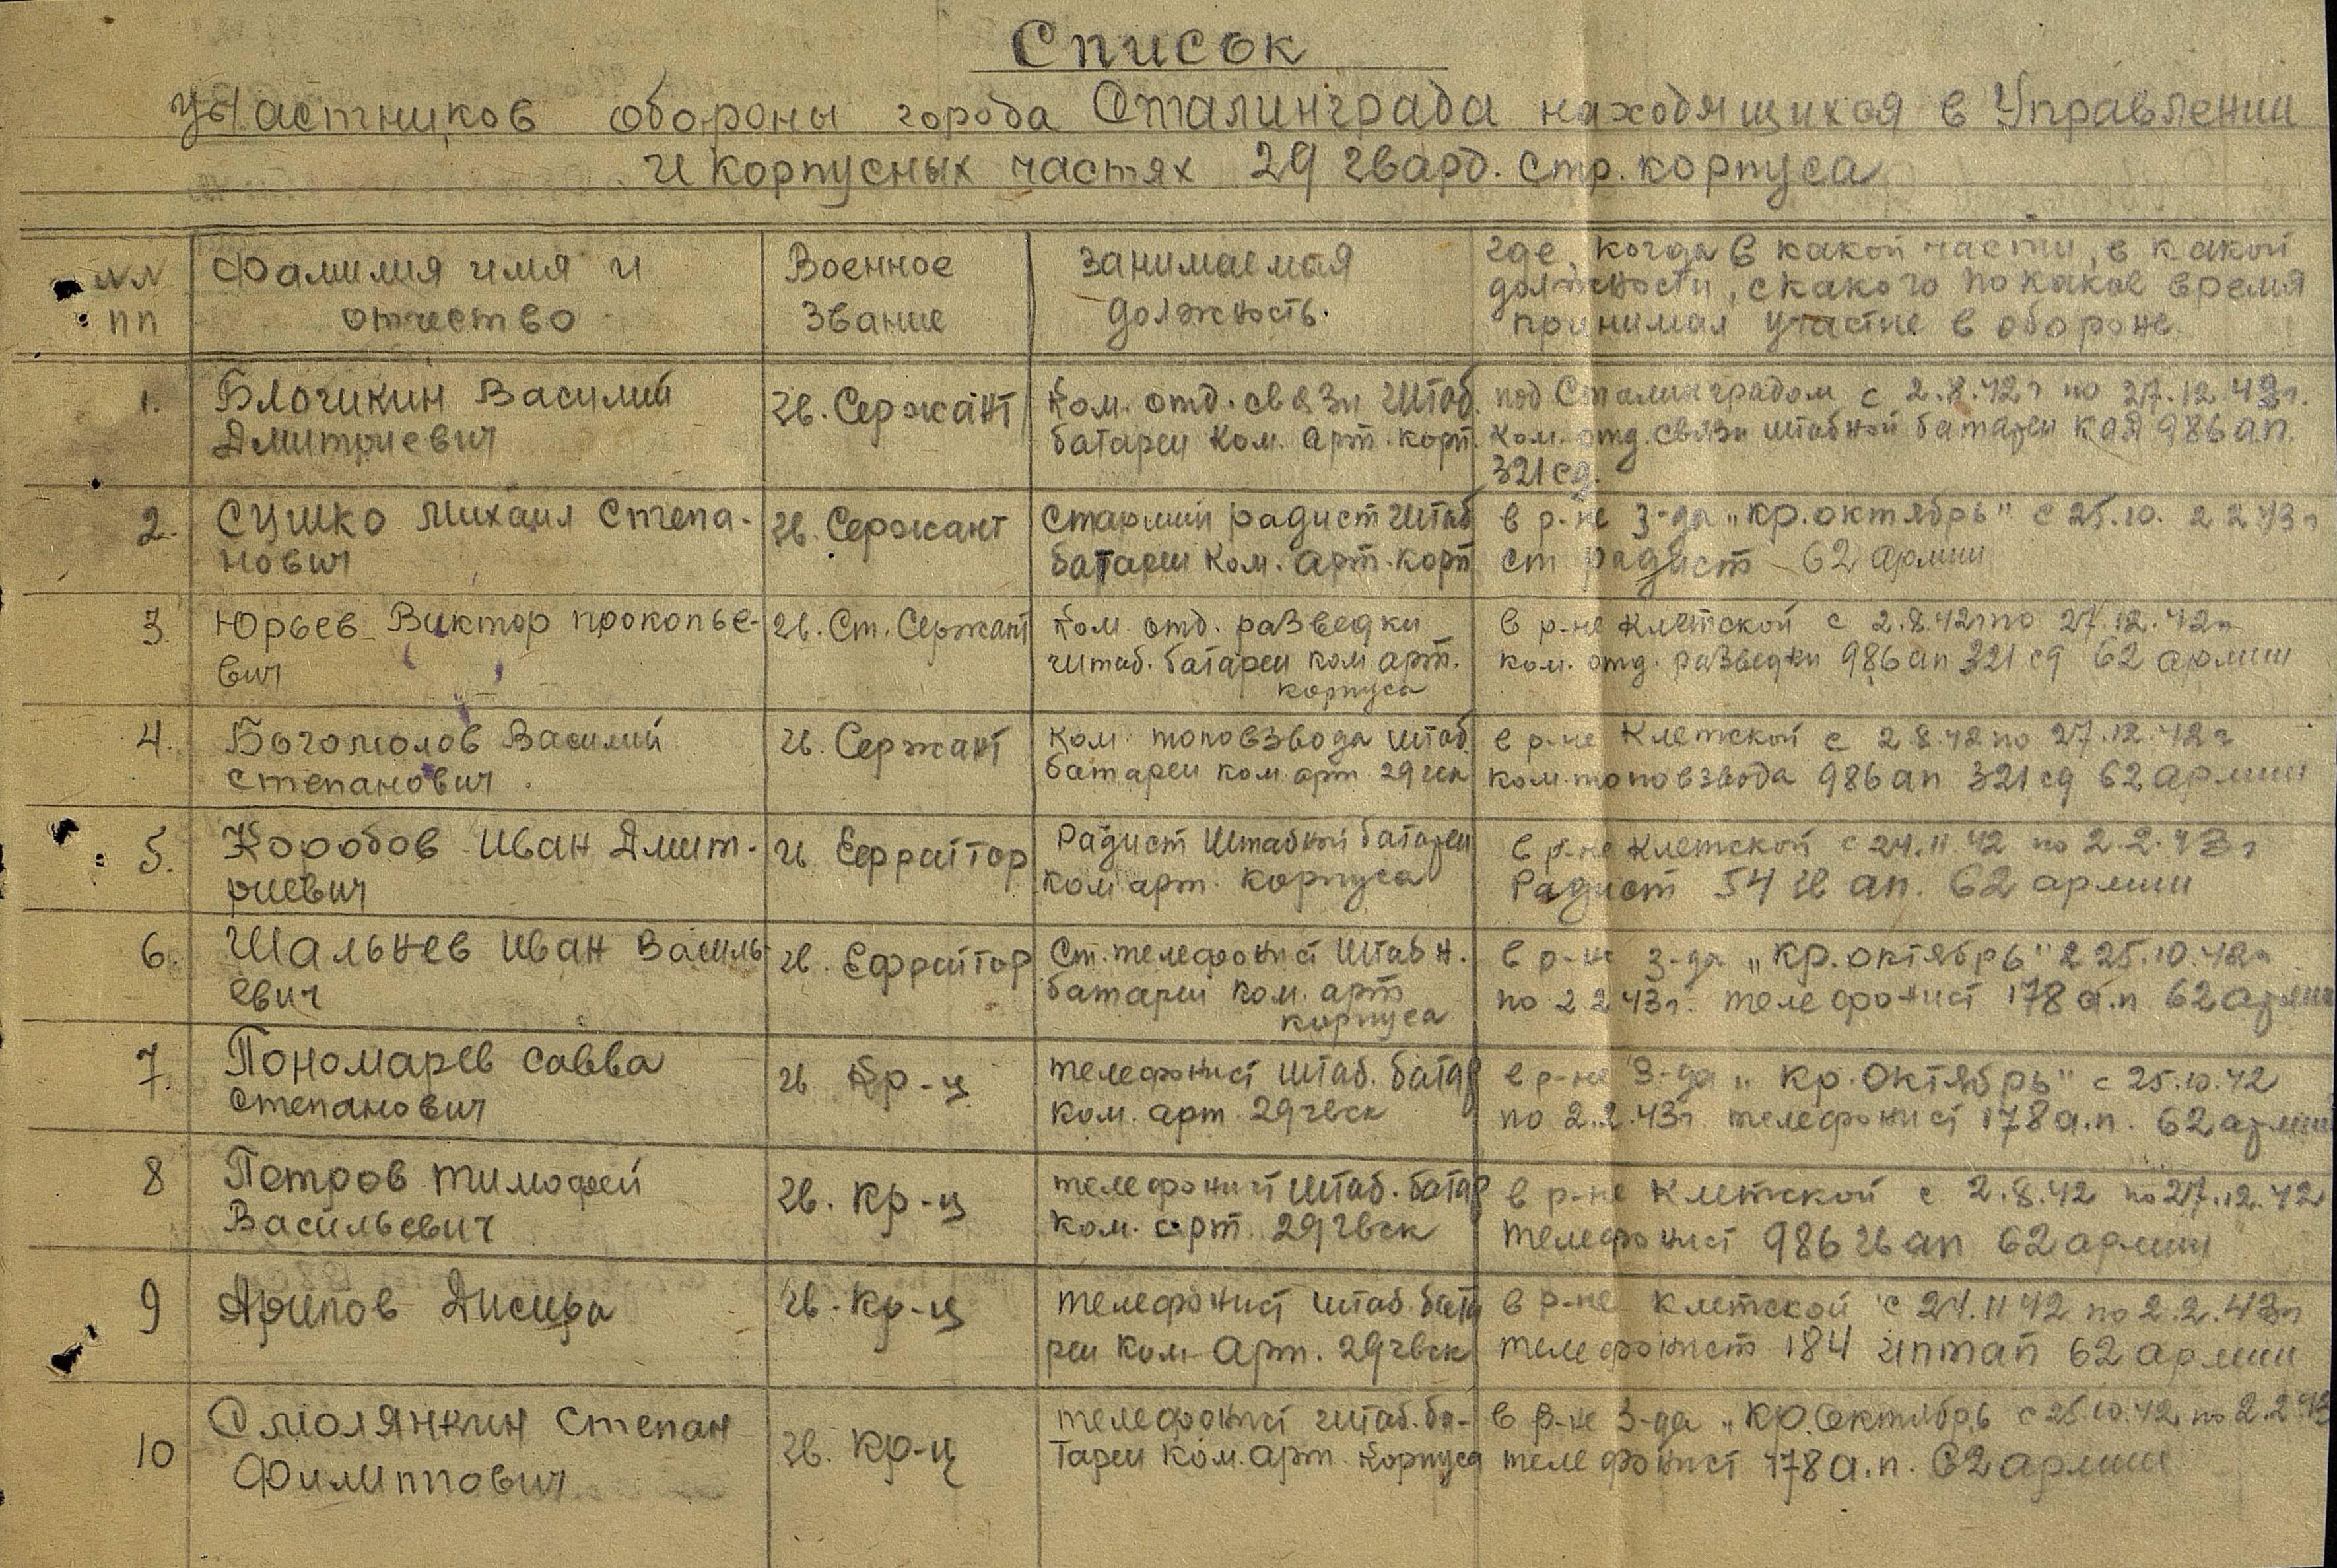 Список
участников обороны города Сталинграда находящихся в Управлении
и корпусных частях 29 гвард. стр. корпуса
№№ пп
Фамилия имя и отчество
Военное звание
занимаемая должность.
где, когда в какой части, в какой
должности, с какого по какое время
принимал участие в обороне.
1. Блочикин Василий Дмитриевич
гв. Сержант
Ком. отд. связи штаб.
батареи Ком. арт. корп.
под Сталинградом с 2.8.42г по 27.12.42г.
Ком. отд. связи штабной батареи 986 ап.
321 сд.
2. Сушко Михаил Степа-
нович
гв. Сержант
Старший радист штаб
батареи Ком. арт. корп
в р-не з-да „Кр. октябрь" с 25.10. 2 2 43г
ст радист 62 армии
3. Юрьев Виктор прокопье-
вич
гв. Ст. Сержант
Ком. отд. разведки
штаб. батареи ком арт.
корпуса
в р-не Клетской с 2.8.42г по 27.12.42г
ком. отд. разведки 986 ап 321 сд 62 армии
4. Богомолов Василий
Степанович.
гв. Сержант
Ком. топовзвода штаб.
батареи ком арт 29 гск
в р-не Клетской с 2 8.42 по 27.12.42г
ком. топовзвода 986 ап 321 сд 62 армии
5. Коробов Иван Дмит-
риевич
гв Ефрейтор
Радист штабной батареи
ком арт. корпуса
в р-не Клетской с 24.11.42 по 2.2.43г
Радист 54 гв ап. 62 армии
6. Шальнев Иван Василь-
евич
гв. Ефрейтор
Ст. телефонист штабн.
батареи ком. арт
корпуса
в р-не з-да „Кр. октябрь" с 25.10.42г
по 2 2 43г. телефонист 178 а.п 62 армии
7. Пономарев Савва
Степанович
гв Кр-ц
телефонист штаб. батар
ком. арт 29 гвск
в р-не з-да „Кр. Октябрь" с 25.10.42
по 2.2.43г. телефонист 178 а.п. 62 армии
8 Петров Тимофей
Васильевич
гв. Кр-ц
телефонист штаб. батар
ком. арт. 29 гвск
в р-не Клетской с 2.8.42 по 27.12.42
телефонист 986 гв ап 62 армии
9 Арипов
гв. Кр-ц
телефонист штаб. бата
реи ком арт. 29 гвск
в р-не Клетской с 24.11 42 по 2.2.43г
телефонист 184 иптап 62 армии
10 Смолянкин Степан
Филиппович
гв. Кр-ц
телефонист штаб. ба-
тареи ком. арт. корпуса
в р-не з-да „Кр. Октябрь с 25.10.42 по 2.2.43
телефонист 178 а.п. 62 армии